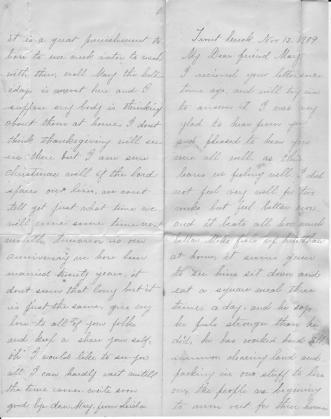 Nov 12. 1909
My Dear friend May
I recieved your letter some
time ago, and will try and
to answer it I was very
glad to hear from you
and pleased to hear you
were all well, as this
leaves us feeling well I did
not feel very well for two
weeks but feel better now
and it beats all how much
better
at home, it seems queer
to see him sit down and
eat a square meal three
times a day and he says
he feels stronger than he
did. he has worked hard all
summer clearing land and
packing in our stuff to live
on, the people are begining
to
it is a great punishment to
have to use week water to wash
with them, well May the holi
days is about here and I
suppose every body is thinking
about them at home I dont
think Thanksgiving will see
us there but I am sure
Christmas will if the Lord
spares our lives, we cant
tell yet just what time we
will come some time next
month, tomorrow is our
anniversary we have been
married twenty years, it
dont seem that long but it
is just the same, give my
love to all of your folks
and keep a share your self,
oh I would like to see you
all I can hardly wait untill
the time comes write soon
good by dear May, from